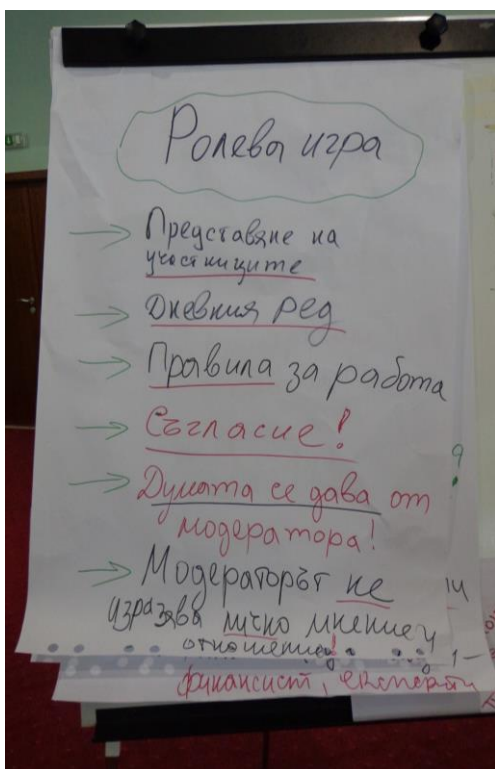 Ролева игра
Представяне на
участниците
Дневния ред
Правила за работа
Съгласие!
Думата се дава от
модератора!
Модераторът не
изразява лично мнение и
отношение!
финансист, експерти